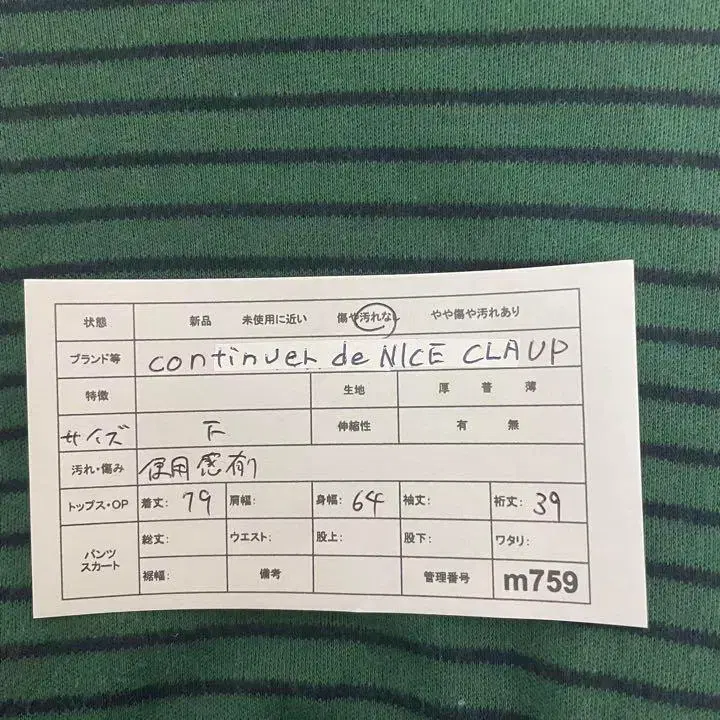 状態 新品 未使用に近い 傷や汚れなし やや傷や汚れあり
ブランド等 continuer de NICE CLAUP
特徴 生地 厚 普 薄
サイズ F 伸縮性 有 無
汚れ・傷み 使用感有り
トップス・OP 着丈: 79 肩幅: 身幅: 64 袖丈: 裄丈: 39
パンツ スカート 総丈: ウエスト: 股上: 股下: ワタリ:
裾幅: 備考 管理番号 m759